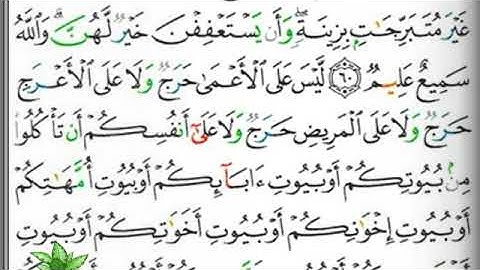 غَيْرَ مُتَبَرِّجَٰتِۭ بِزِينَةٍۖ وَأَن يَسْتَعْفِفْنَ خَيْرٌ لَّهُنَّۗ وَٱللَّهُ
سَمِيعٌ عَلِيمٌ ٦٠ لَّيْسَ عَلَى ٱلْأَعْمَىٰ حَرَجٌ وَلَا عَلَى ٱلْأَعْرَجِ
حَرَجٌ وَلَا عَلَى ٱلْمَرِيضِ حَرَجٌ وَلَا عَلَىٰٓ أَنفُسِكُمْ أَن تَأْكُلُوا۟
مِنۢ بُيُوتِكُمْ أَوْ بُيُوتِ ءَابَآئِكُمْ أَوْ بُيُوتِ أُمَّهَٰتِكُمْ
أَوْ بُيُوتِ إِخْوَٰنِكُمْ أَوْ بُيُوتِ أَخَوَٰتِكُمْ أَوْ بُيُوتِ